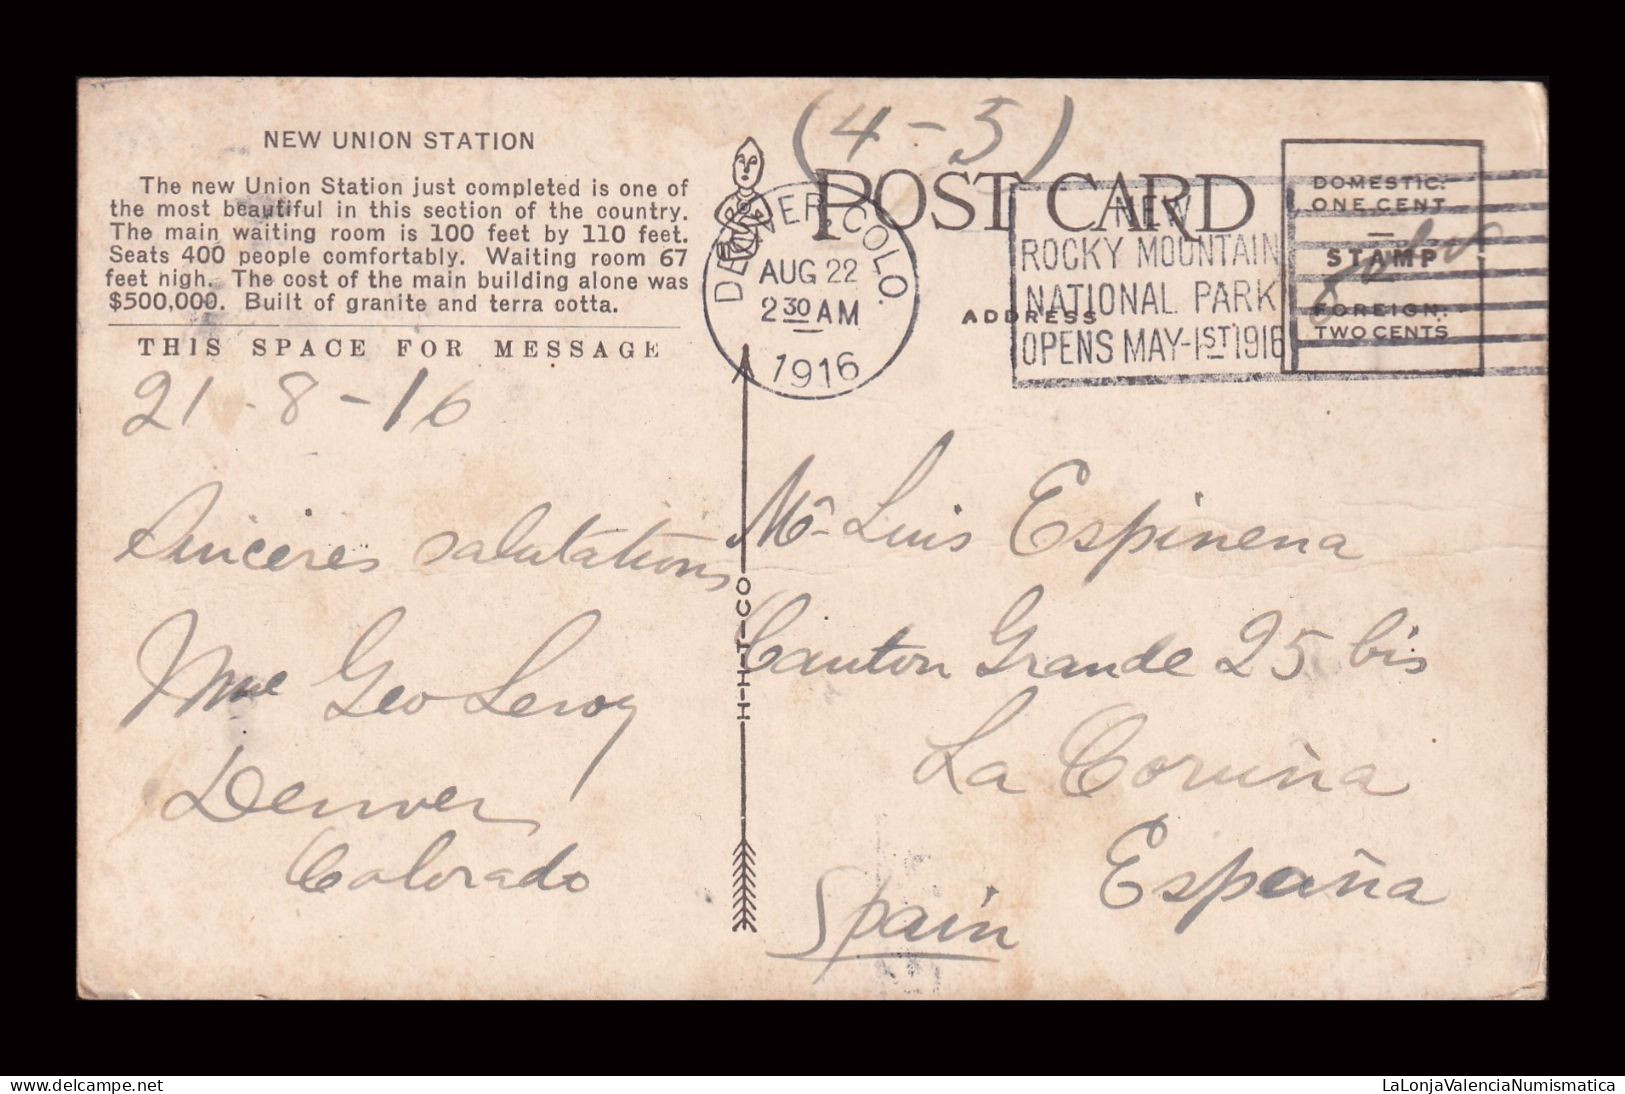 (4-5)
NEW UNION STATION
The new Union Station just completed is one of
the most beautiful in this section of the country.
The main waiting room is 100 feet by 110 feet.
Seats 400 people comfortably. Waiting room 67
feet high. The cost of the main building alone was
$500,000. Built of granite and terra cotta.
THIS SPACE FOR MESSAGE
21-8-16
Sinceres salutations
Mme Geo Leroy
Denver
Colorado
H-H-T-CO
POST CARD
ADDRESS
DENVER, COLO.
AUG 22
2 30 AM
1916
NEW
ROCKY MOUNTAIN
NATIONAL PARK
OPENS MAY-1ST 1916
DOMESTIC:
ONE CENT
STAMP
FOREIGN:
TWO CENTS
Mr Luis Espinena
Canton Grande 25 bis
La Coruña
España
Spain
delcampe.net
LaLonjaValenciaNumismatica